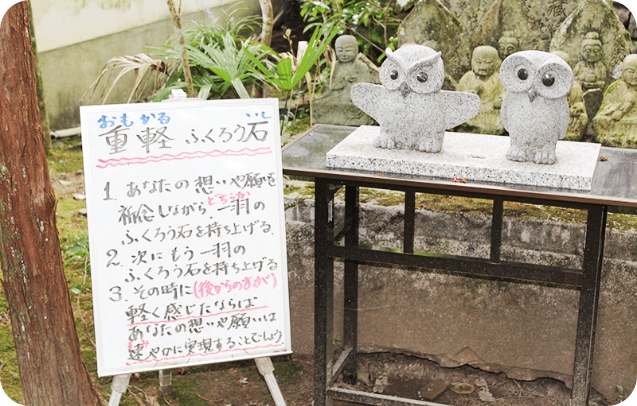 おもかる いし
重軽ふくろう石
1. あなたの想いや願いを
どちらか
祈念しながら、一羽の
ふくろう石を持ち上げる
2. 次にもう一羽の
ふくろう石を持ち上げる
3. その時に(後からの方が)
軽く感じたならば
あなたの想いや願いは
すみ
速やかに実現することでしょう